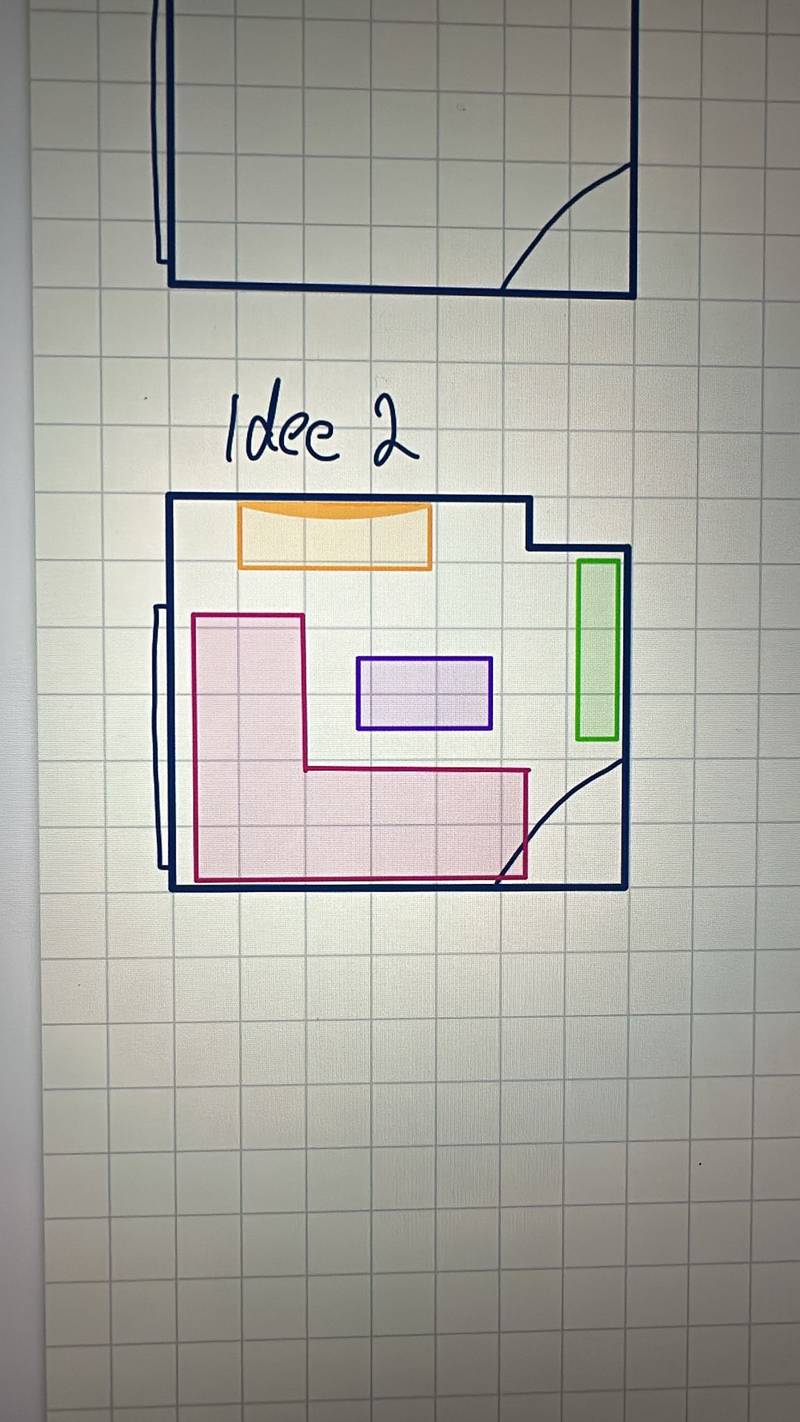 Idee 2